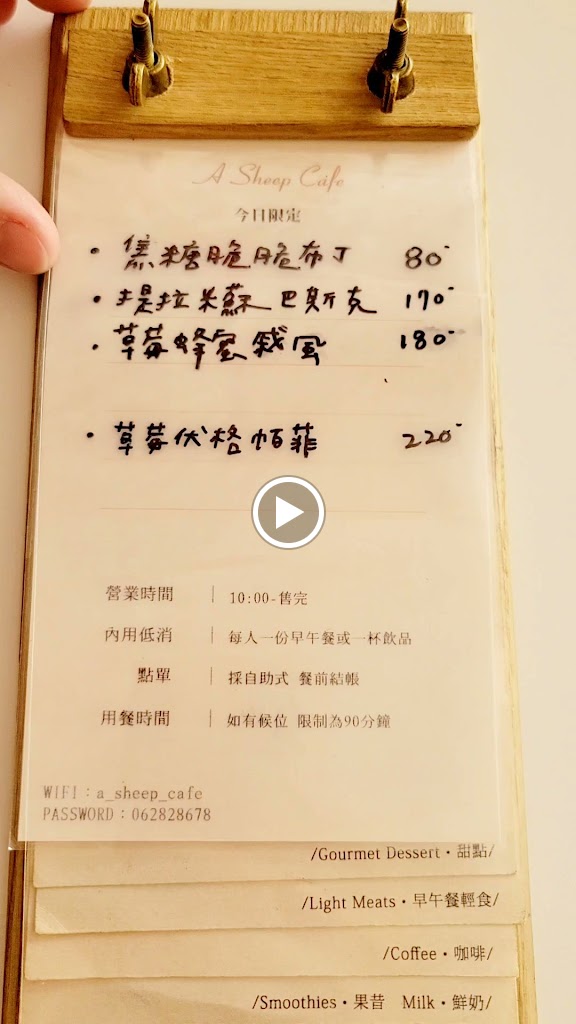 A Sheep Cafe
今日限定
• 焦糖脆脆布丁 80-
• 提拉米蘇巴斯克 170-
• 草莓蜂蜜戚風 180-
• 草莓伏格帕菲 220-
營業時間 | 10:00-售完
內用低消 | 每人一份早午餐或一杯飲品
點單 | 採自助式 餐前結帳
用餐時間 | 如有候位 限制為90分鐘
WIFI：a_sheep_cafe
PASSWORD：062828678
/Gourmet Dessert・甜點/
/Light Meats・早午餐輕食/
/Coffee・咖啡/
/Smoothies・果昔 Milk・鮮奶/